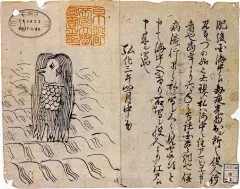 肥後国海中え毎夜光物出ル所之役人行
見るニづの如く之者現ス私ハ海中ニ住アマビヱト申
者也当年より六ヶ年之間諸国豊作也併
病流行早々私ヲ写シ人々ニ見セ候得と
申て海中へ入けり右ハ写シ役人より江戸え
申来ル写也
弘化三年四月中旬